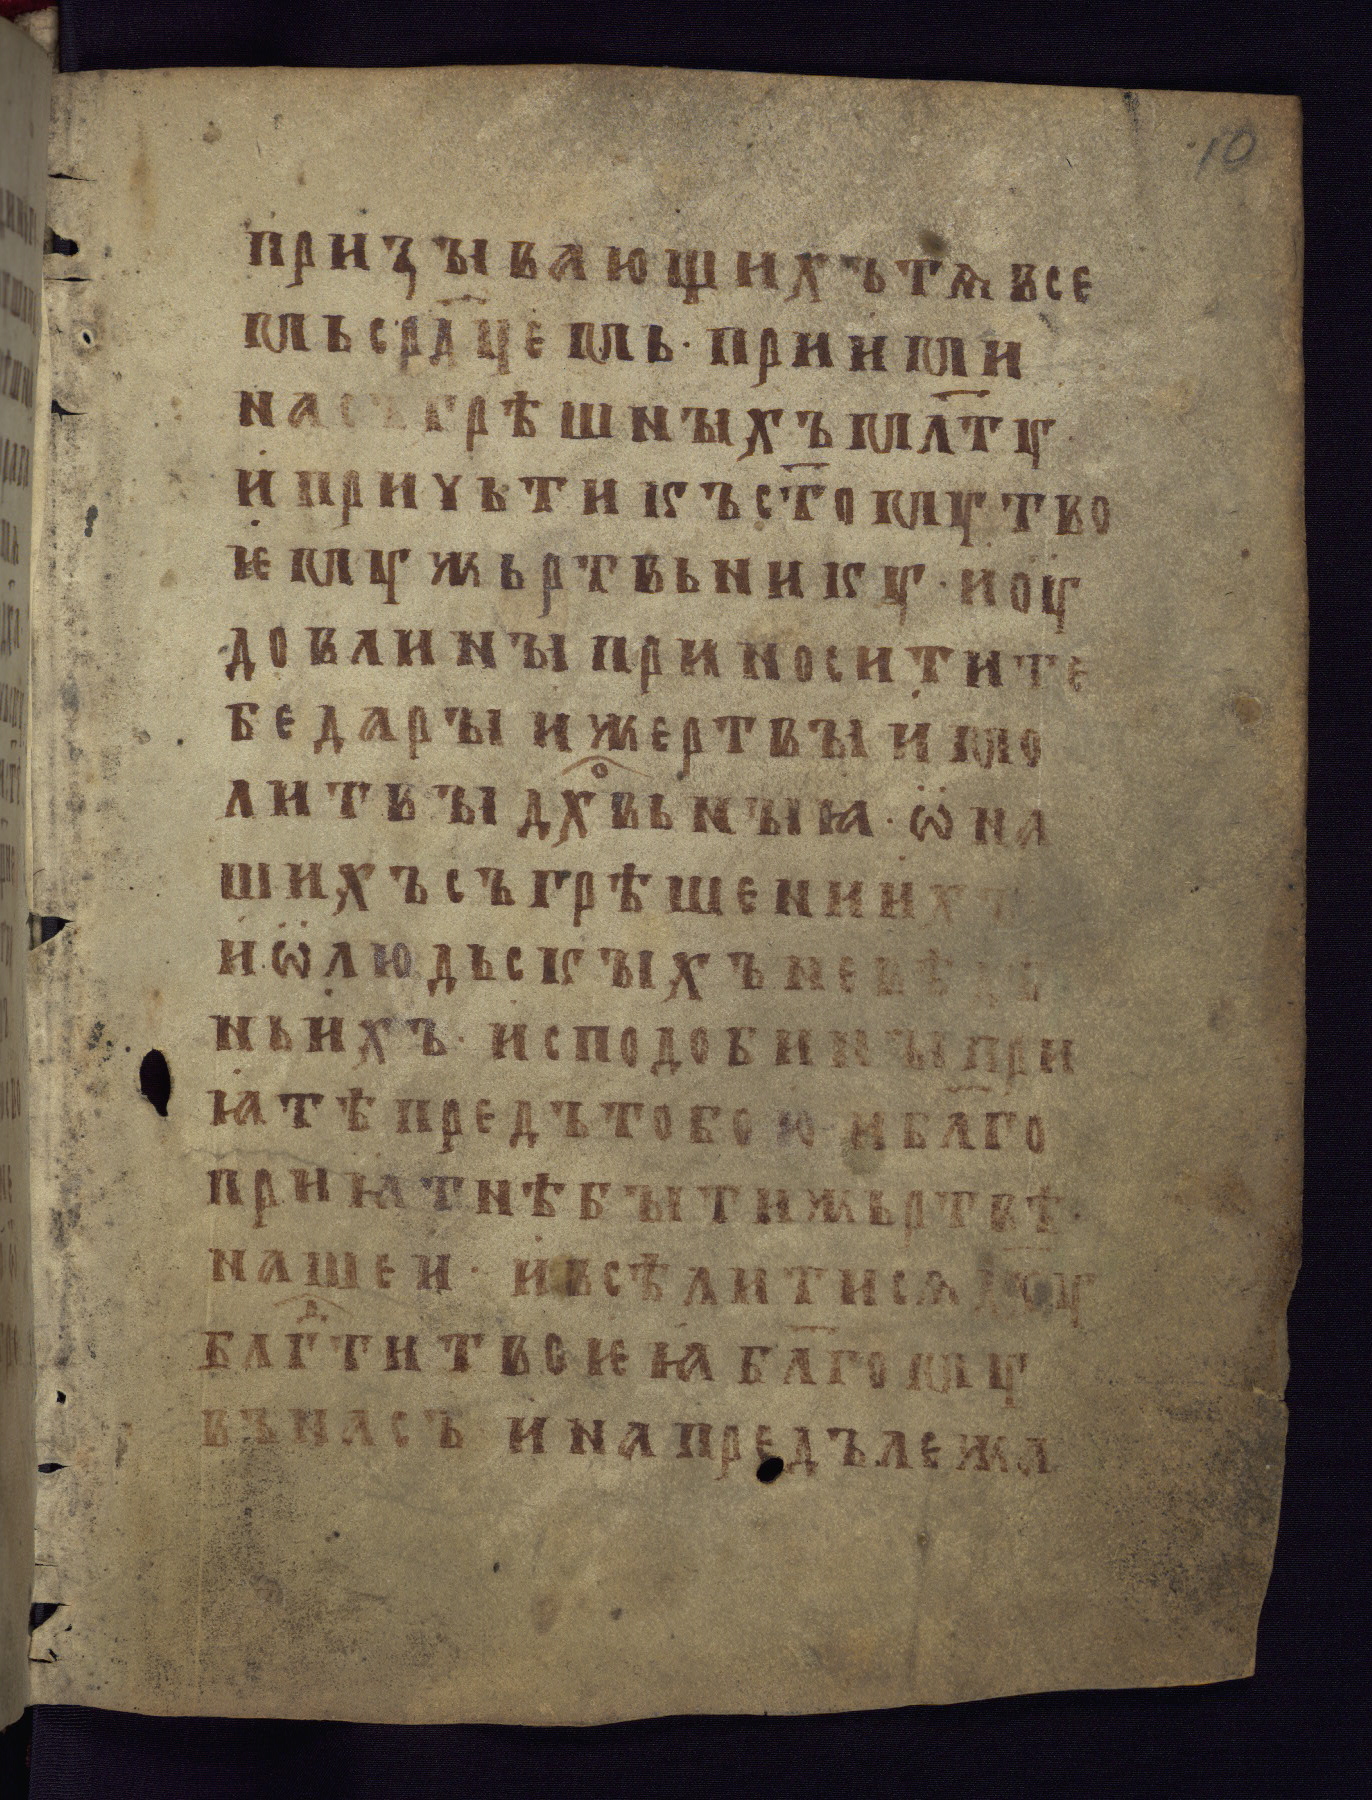 10
призывающихътѧвсе
мьср҃дцемь · приими
насъгрѣшныхъмл҃тꙋ
ипричьтикъст҃омꙋтво
ѥмꙋжьртвьникꙋ · иоꙋ
довлиныприноситите
бедарыижертвыимо
литвыдх҃ⷪвьныꙗ · ѡна
шихъсъгрѣшениихъ
иѡлюдьскыхъневѣдѣ
ньихъ · исподобиныпри
ꙗтѣпредътобою · ибл҃го
приꙗтнѣбытижьртвѣ
нашеи · ивсѣлитисѧдх҃оу
блг҃ⷣтитвоѥꙗбл҃гомꙋ
вънасъ инапредълежа